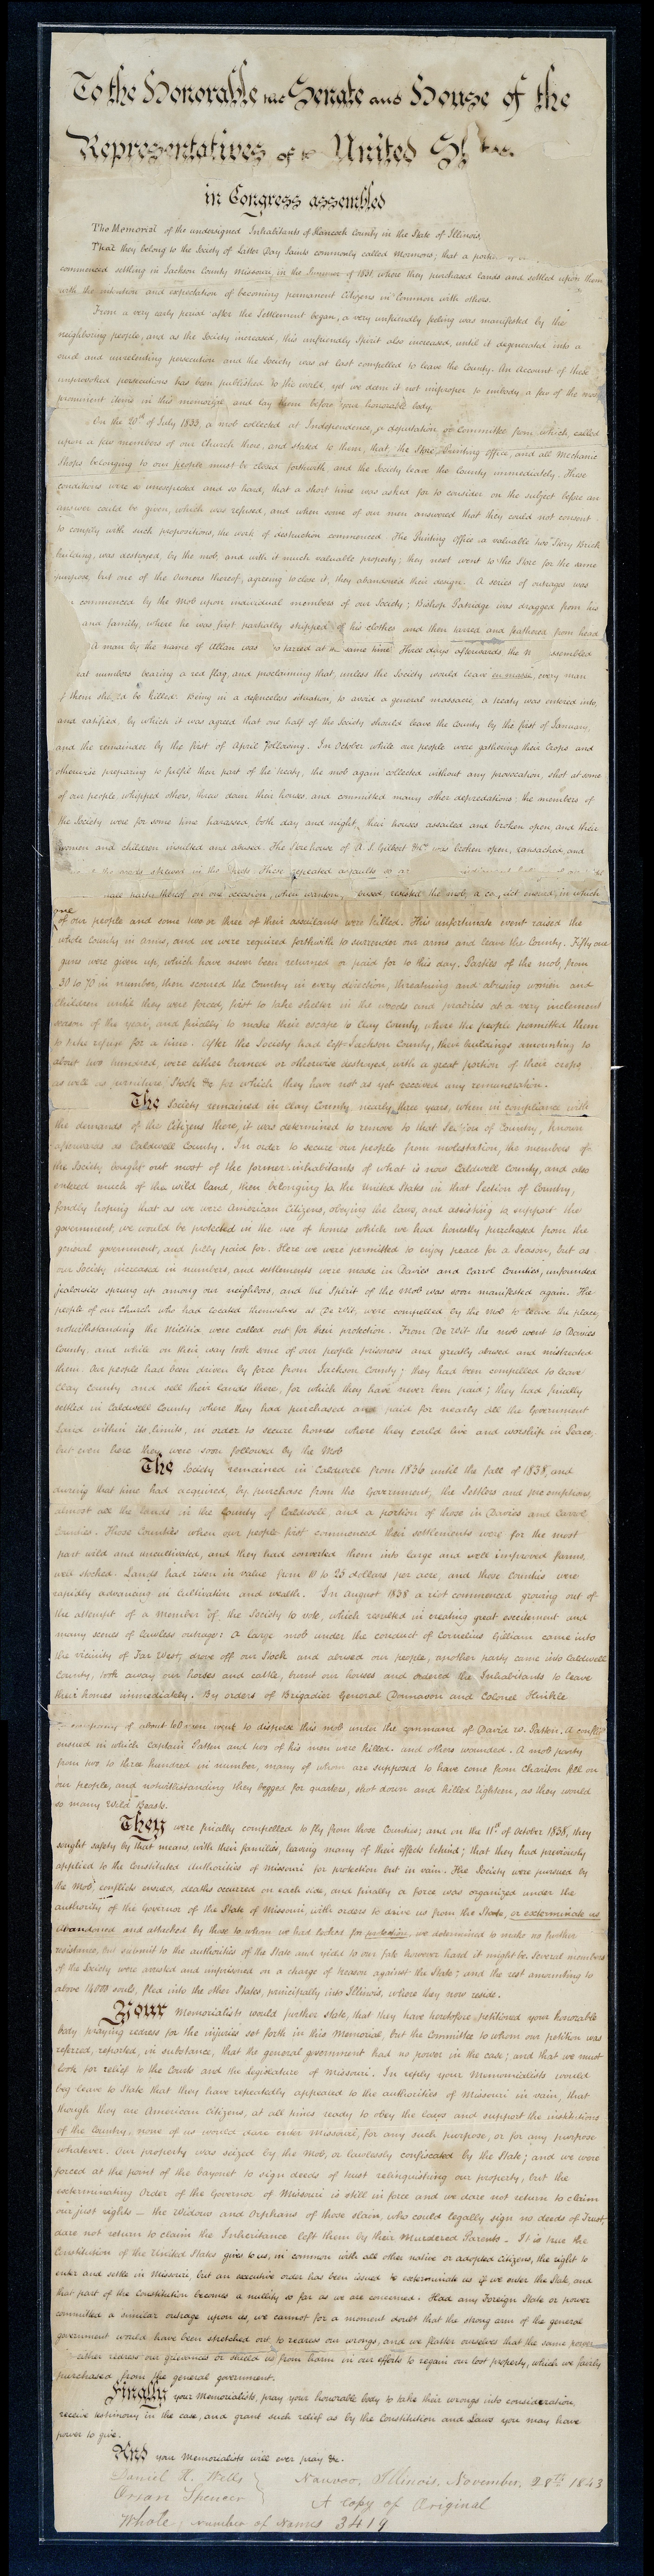 To the Honorable the Senate and House of the
Representatives of the United States
in Congress assembled
The Memorial of the undersigned Inhabitants of Hancock County in the State of Illinois,
That they belong to the Society of Latter Day Saints commonly called Mormons; that a portion
commenced settling in Jackson County Missouri, in the Summer of 1831, where they purchased lands and settled upon them
with the intention and expectation of becoming permanent Citizens in Common with others.
From a very early period after the Settlement began, a very unfriendly feeling was manifested by the
neighboring people, and as the Society increased, this unfriendly Spirit also increased, until it degenerated into a
cruel and unrelenting persecution and the Society was at last compelled to leave the County. An Account of these
unprovoked persecutions has been published to the world, yet we deem it not improper to embody a few of the most
prominent items in this memorial and lay them before your honorable body.
On the 20th of July 1833, a mob collected at Independence, a deputation, or Committee from which, called
upon a few members of our Church there, and stated to them, that the Store, Printing office, and all Mechanic
Shops belonging to our people must be closed forthwith and the Society leave the County immediately. These
conditions were so unexpected and so hard, that a short time was asked for to consider on the subject before an
answer could be given, which was refused, and when some of our men answered that they could not consent
to comply with such propositions, the work of destruction commenced. The Printing Office a valuable two Story Brick
building, was destroyed, by the mob, and with it much valuable property; they next went to the Store for the same
purpose, but one of the Owners thereof, agreeing to close it, they abandoned their design. A series of outrages was
commenced by the Mob upon individual members of our Society; Bishop Patridge was dragged from his
and family, where he was first partially stripped of his clothes and then tarred and feathered from head
A man by the name of Allan was so tarred at the same time. Three days afterwards the assembled
numbers bearing a red flag, and proclaiming that, unless the Society would leave en masse, every man
of them should be killed. Being in a defenceless situation, to avoid a general massacre, a treaty was entered into,
and ratified, by which it was agreed that one half of the Society should leave the County by the first of January,
and the remainder by the first of April following. In October while our people were gathering their Crops and
otherwise preparing to fulfil their part of the treaty, the mob again collected without any provocation, shot at some
of our people, whipped others, threw down their houses, and committed many other depredations; the members of
the Society were for some time harassed, both day and night, their houses assailed and broken open, and their
women and children insulted and abused. The Store house of A. S. Gilbert & Co was broken open, ransacked, and
the goods strewed in the Streets. These repeated assaults so
party thereof on one occasion, when wantonly resisted the mob, a conflict ensued, in which
one
of our people and some two or three of their assailants were killed. This unfortunate event raised the
whole County in arms, and we were required forthwith to surrender our arms and leave the County. Fifty one
guns were given up, which have never been returned or paid for to this day. Parties of the mob, from
30 to 70 in number, then scoured the Country in every direction, threatning and abusing women and
Children until they were forced, first to take shelter in the woods and prairies at a very inclement
season of the year, and finally to make their escape to Clay County, where the people permitted them
to take refuge for a time. After the Society had left Jackson County, their buildings amounting to
about two hundred, were either burned or otherwise destroyed, with a great portion of their crops,
as well as furniture, Stock &c for which they have not as yet received any remuneration.
The Society remained in Clay County, nearly three years, when in compliance with
the demands of the Citizens there, it was determined to remove to that Section of Country, known
afterwards as Caldwell County. In order to secure our people from molestation, the members of
the Society bought out most of the former inhabitants of what is now Caldwell County, and also
entered much of the wild land, then belonging to the United States in that Section of Country,
fondly hoping that as we were American Citizens, obeying the laws, and assisting to support the
government, we would be protected in the use of homes which we had honestly purchased from the
general government, and fully paid for. Here we were permitted to enjoy peace for a Season, but as
our Society increased in numbers, and settlements were made in Davies and Carrol Counties, unfounded
jealousies sprung up among our neighbors, and the Spirit of the Mob was soon manifested again. The
people of our Church who had located themselves at De Wit, were compelled by the Mob to leave the place,
notwithstanding the Militia were called out for their protection. From De Wit the mob went to Davies
County, and while on their way took some of our people prisoners and greatly abused and mistreated
them. Our people had been driven by force from Jackson County; they had been compelled to leave
Clay County and sell their lands there, for which they have never been paid; they had finally
settled in Caldwell County where they had purchased and paid for nearly all the Government
land within its limits, in order to secure homes where they could live and worship in Peace,
but even here they were soon followed by the Mob
The Society remained in Caldwell from 1836 until the fall of 1838, and
during that time had acquired, by purchase from the Government, the Settlers and preemptioners,
almost all the lands in the County of Caldwell, and a portion of those in Davies and Carrol
Counties. Those Counties when our people first commenced their settlements were for the most
part wild and uncultivated, and they had converted them into large and well improved farms,
well stocked. Lands had risen in value from 10 to 25 dollars per acre, and those Counties were
rapidly advancing in Cultivation and wealth. In august 1838 a riot commenced growing out of
the attempt of a Member of the Society to vote, which resulted in creating great excitement and
many scenes of lawless outrage: A large mob under the conduct of Cornelius Gilliam came into
the vicinity of Far West, drove off our Stock and abused our people, another party came into Caldwell
County, took away our horses and cattle, burnt our houses and ordered the Inhabitants to leave
their homes immediately. By orders of Brigadier General Donnavon and Colonel Hinkle
company of about 60 men went to disperse this mob under the command of David W. Patten. A conflict
ensued in which Captain Patten and two of his men were killed. and others wounded. A mob party
from two to three hundred in number, many of whom are supposed to have come from Chariton fell on
our people, and notwithstanding they begged for quarters, shot down and killed Eighteen, as they would
so many Wild Beasts.
They were finally compelled to fly from those Counties; and on the 11th of October 1838, they
sought safety by that means, with their families, leaving many of their effects behind; that they had previously
applied to the Constituted Authorities of Missouri for protection but in vain. The Society were pursued by
the Mob, conflicts ensued, deaths occurred on each side, and finally a force was organized under the
authority of the Governor of the State of Missouri, with orders to drive us from the State, or exterminate us
Abandoned and attacked by those to whom we had looked for protection, we determined to make no further
resistance, but submit to the authorities of the State and yield to our fate however hard it might be. Several members
of the Society were arrested and imprisoned on a charge of treason against the State; and the rest amounting to
above 14,000 souls, fled into the other States, principally into Illinois, where they now reside.
Your Memorialists would further state, that they have heretofore, petitioned your honorable
body praying redress for the injuries set forth in this Memorial, but the Committee to whom our petition was
referred, reported, in substance, that the general government had no power in the case; and that we must
look for relief to the Courts and the legislature of Missouri. In reply your Memorialists would
beg leave to State that they have repeatedly appealed to the authorities of Missouri in vain, that
though they are American citizens, at all times ready to obey the laws and support the institutions
of the Country, none of us would dare enter Missouri, for any such purpose, or for any purpose
whatever. Our property was seized by the Mob, or lawlessly confiscated by the State; and we were
forced at the point of the bayonet to sign deeds of trust relinquishing our property, but the
exterminating Order of the Governor of Missouri is still in force and we dare not return to claim
our just rights – the Widows and Orphans of those slain, who could legally sign no deeds of Trust,
dare not return to claim the Inheritance left them by their Murdered Parents. It is true the
Constitution of the United States gives to us, in common with all other native or adopted citizens, the right to
enter and settle in Missouri, but an executive order has been issued to exterminate us if we enter the State, and
that part of the Constitution becomes a nullity so far as we are concerned. Had any Foreign State or power
committed a similar outrage upon us, we cannot for a moment doubt that the strong arm of the general
government would have been stretched out to redress our wrongs, and we flatter ourselves that the same power
either redress our grievances or shield us from harm in our efforts to regain our lost property, which we fairly
purchased from the general government.
Finally your Memorialists, pray your honorable body to take their wrongs into consideration,
receive testimony in the case, and grant such relief as by the Constitution and Laws you may have
power to give.
And you Memorialists will ever pray &c.
Daniel H. Wells } Nauvoo, Illinois, November, 28th 1843
Orson Spencer } A Copy of Original
Whole, Number of Names 3419